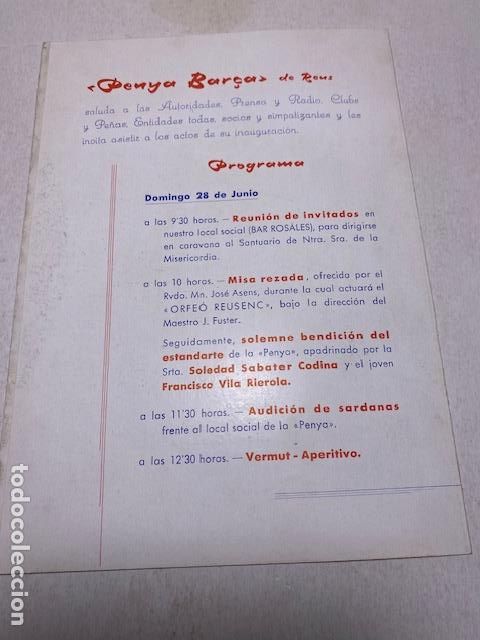 «Penya Barça» de Reus
saluda a las Autoridades, Prensa y Radio, Clubs
y Peñas, Entidades todas, socios y simpatizantes y les
invita asistir a los actos de su inauguración.
Programa
Domingo 28 de Junio
a las 9'30 horas. — Reunión de invitados en
nuestro local social (BAR ROSALES), para dirigirse
en caravana al Santuario de Ntra. Sra. de la
Misericordia.
a las 10 horas. — Misa rezada, ofrecida por el
Rvdo. Mn. José Asens, durante la cual actuará el
«ORFEÓ REUSENC», bajo la dirección del
Maestro J. Fuster.
Seguidamente, solemne bendición del
estandarte de la «Penya», apadrinado por la
Srta. Soledad Sabater Codina y el joven
Francisco Vila Rierola.
a las 11'30 horas. — Audición de sardanas
frente al local social de la «Penya».
a las 12'30 horas. — Vermut - Aperitivo.
todocoleccion.net